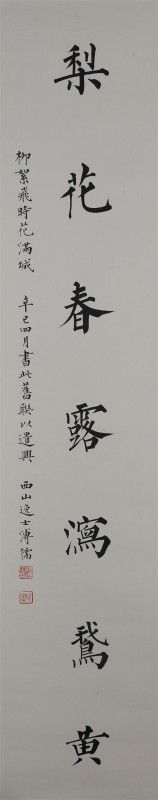 梨花春露瀉鵞黃
柳絮飛時花滿城　辛巳四月書此舊聯以遣興　西山逸士溥儒